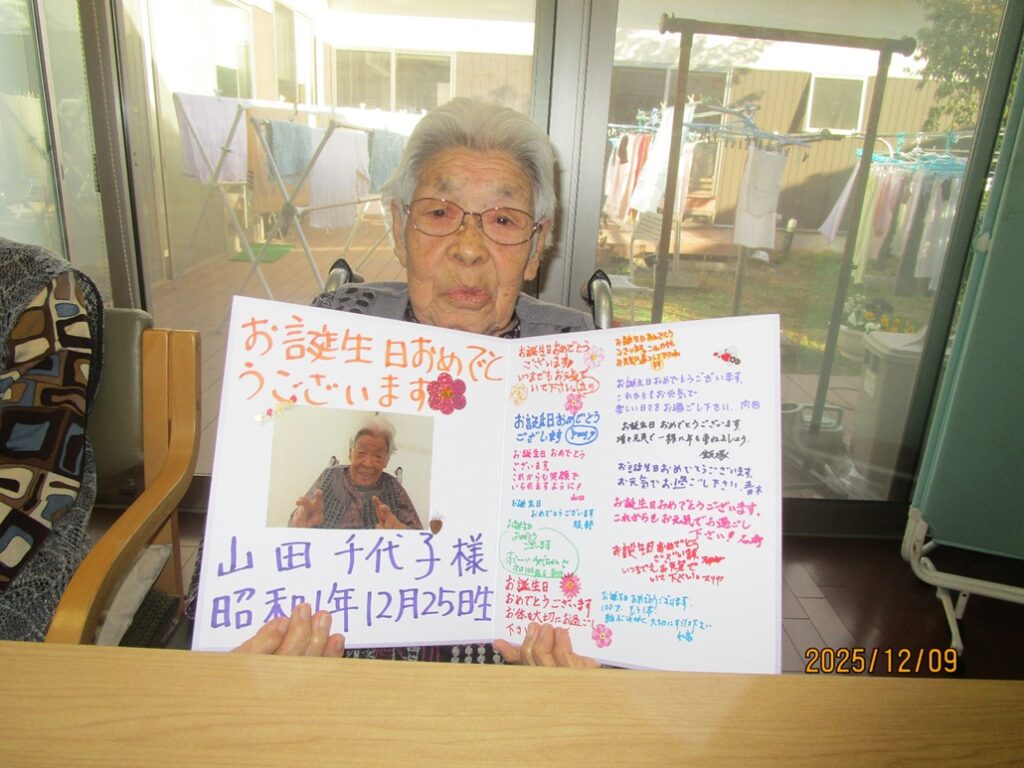 お誕生日おめでと
うございます
山田千代子様
昭和1年12月25日生
お誕生日おめでとう
ございます!
いつまでもお元気で
いて下さい
お誕生日おめでとう
ございます
お誕生日おめでとう
ございます。
これからも笑顔で
いられますように!
山口
お誕生日
おめでとうございます
服部
お誕生日
おめでとう
ございます
お誕生日
おめでとうございます
お体を大切にお過ごし
下さい
お誕生日おめでとうございます。
これからもお元気で
楽しい日々をお過ごし下さい。内田
お誕生日おめでとうございます
飯塚
お誕生日おめでとうございます。
お元気でお過ごし下さい。
お誕生日おめでとうございます。
これからもお元気でお過ごし
下さい!
お誕生日おめでとう
ございます
いつまでもお元気で
いて下さい
お誕生日おめでとうございます。
2025/12/09